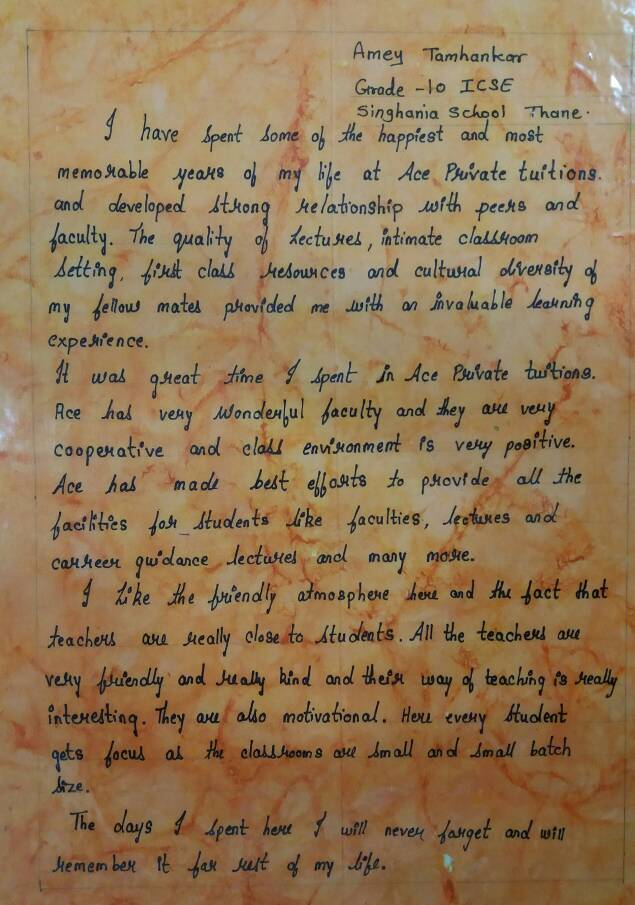 Amey Tamhankar
Grade -10 ICSE
Singhania School Thane.
I have spent some of the happiest and most
memorable years of my life at Ace Private tuitions.
and developed strong relationship with peers and
faculty. The quality of lectures, intimate classroom
setting, first class resources and cultural diversity of
my fellow mates provided me with an invaluable learning
experience.
It was great time I spent in Ace Private tuitions.
Ace has very wonderful faculty and they are very
cooperative and class environment is very positive.
Ace has made best efforts to provide all the
facilities for students like faculties, lectures and
carreer guidance lectures and many more.
I like the friendly atmosphere here and the fact that
teachers are really close to students. All the teachers are
very friendly and really kind and their way of teaching is really
interesting. They are also motivational. Here every student
gets focus as the classrooms are small and small batch
size.
The days I spent here I will never forget and will
remember it for rest of my life.